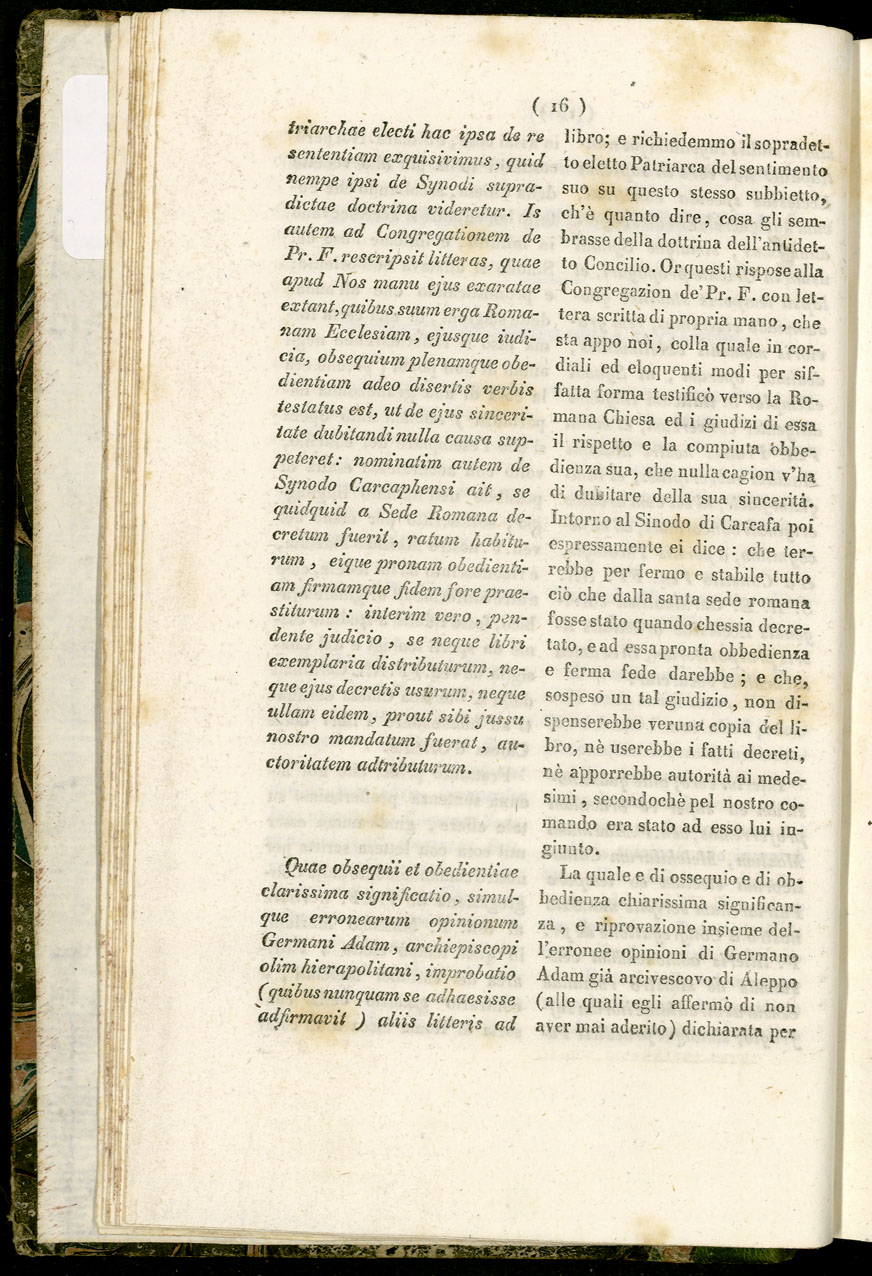 ( 16 )
triarchae electi hac ipsa de re
sententiam exquisivimus, quid
nempe ipsi de Synodi supra-
dictae doctrina videretur. Is
autem ad Congregationem de
Pr. F. rescripsit litteras, quae
apud Nos manu ejus exaratae
extant, quibus suum erga Roma-
nam Ecclesiam, ejusque iudi-
cia, obsequium plenamque obe-
dientiam adeo disertis verbis
testatus est, ut de ejus sinceri-
tate dubitandi nulla causa sup-
peteret: nominatim autem de
Synodo Carcaphensi ait, se
quidquid a Sede Romana de-
cretum fuerit, ratum habitu-
rum, eique pronam obedienti-
am firmamque fidem fore prae-
stiturum: interim vero, pen-
dente judicio, se neque libri
exemplaria distributurum, ne-
que ejus decretis usurum, neque
ullam eidem, prout sibi jussu
nostro mandatum fuerat, au-
ctoritatem adtributurum.
Quae obsequii et obedientiae
clarissima significatio, simul-
que erronearum opinionum
Germani Adam, archiepiscopi
olim hierapolitani, improbatio
(quibus nunquam se adhaesisse
adfirmavit) aliis litteris ad
libro; e richiedemmo il sopradet-
to eletto Patriarca del sentimento
suo su questo stesso subbietto,
ch'è quanto dire, cosa gli sem-
brasse della dottrina dell'antidet-
to Concilio. Or questi rispose alla
Congregazion de' Pr. F. con let-
tera scritta di propria mano, che
sta appo noi, colla quale in cor-
diali ed eloquenti modi per sif-
fatta forma testificò verso la Ro-
mana Chiesa ed i giudizi di essa
il rispetto e la compiuta obbe-
dienza sua, che nulla cagion v'ha
di dubitare della sua sincerità.
Intorno al Sinodo di Carcafa poi
espressamente ei dice: che ter-
rebbe per fermo e stabile tutto
ciò che dalla santa sede romana
fosse stato quando chessia decre-
tato, e ad essa pronta obbedienza
e ferma fede darebbe; e che,
sospeso un tal giudizio, non di-
spenserebbe veruna copia del li-
bro, nè userebbe i fatti decreti,
nè apporrebbe autorità ai mede-
simi, secondochè pel nostro co-
mando era stato ad esso lui in-
giunto.
La quale e di ossequio e di ob-
bedienza chiarissima significan-
za, e riprovazione insieme del-
l'erronee opinioni di Germano
Adam già arcivescovo di Aleppo
(alle quali egli affermò di non
aver mai aderito) dichiarata per